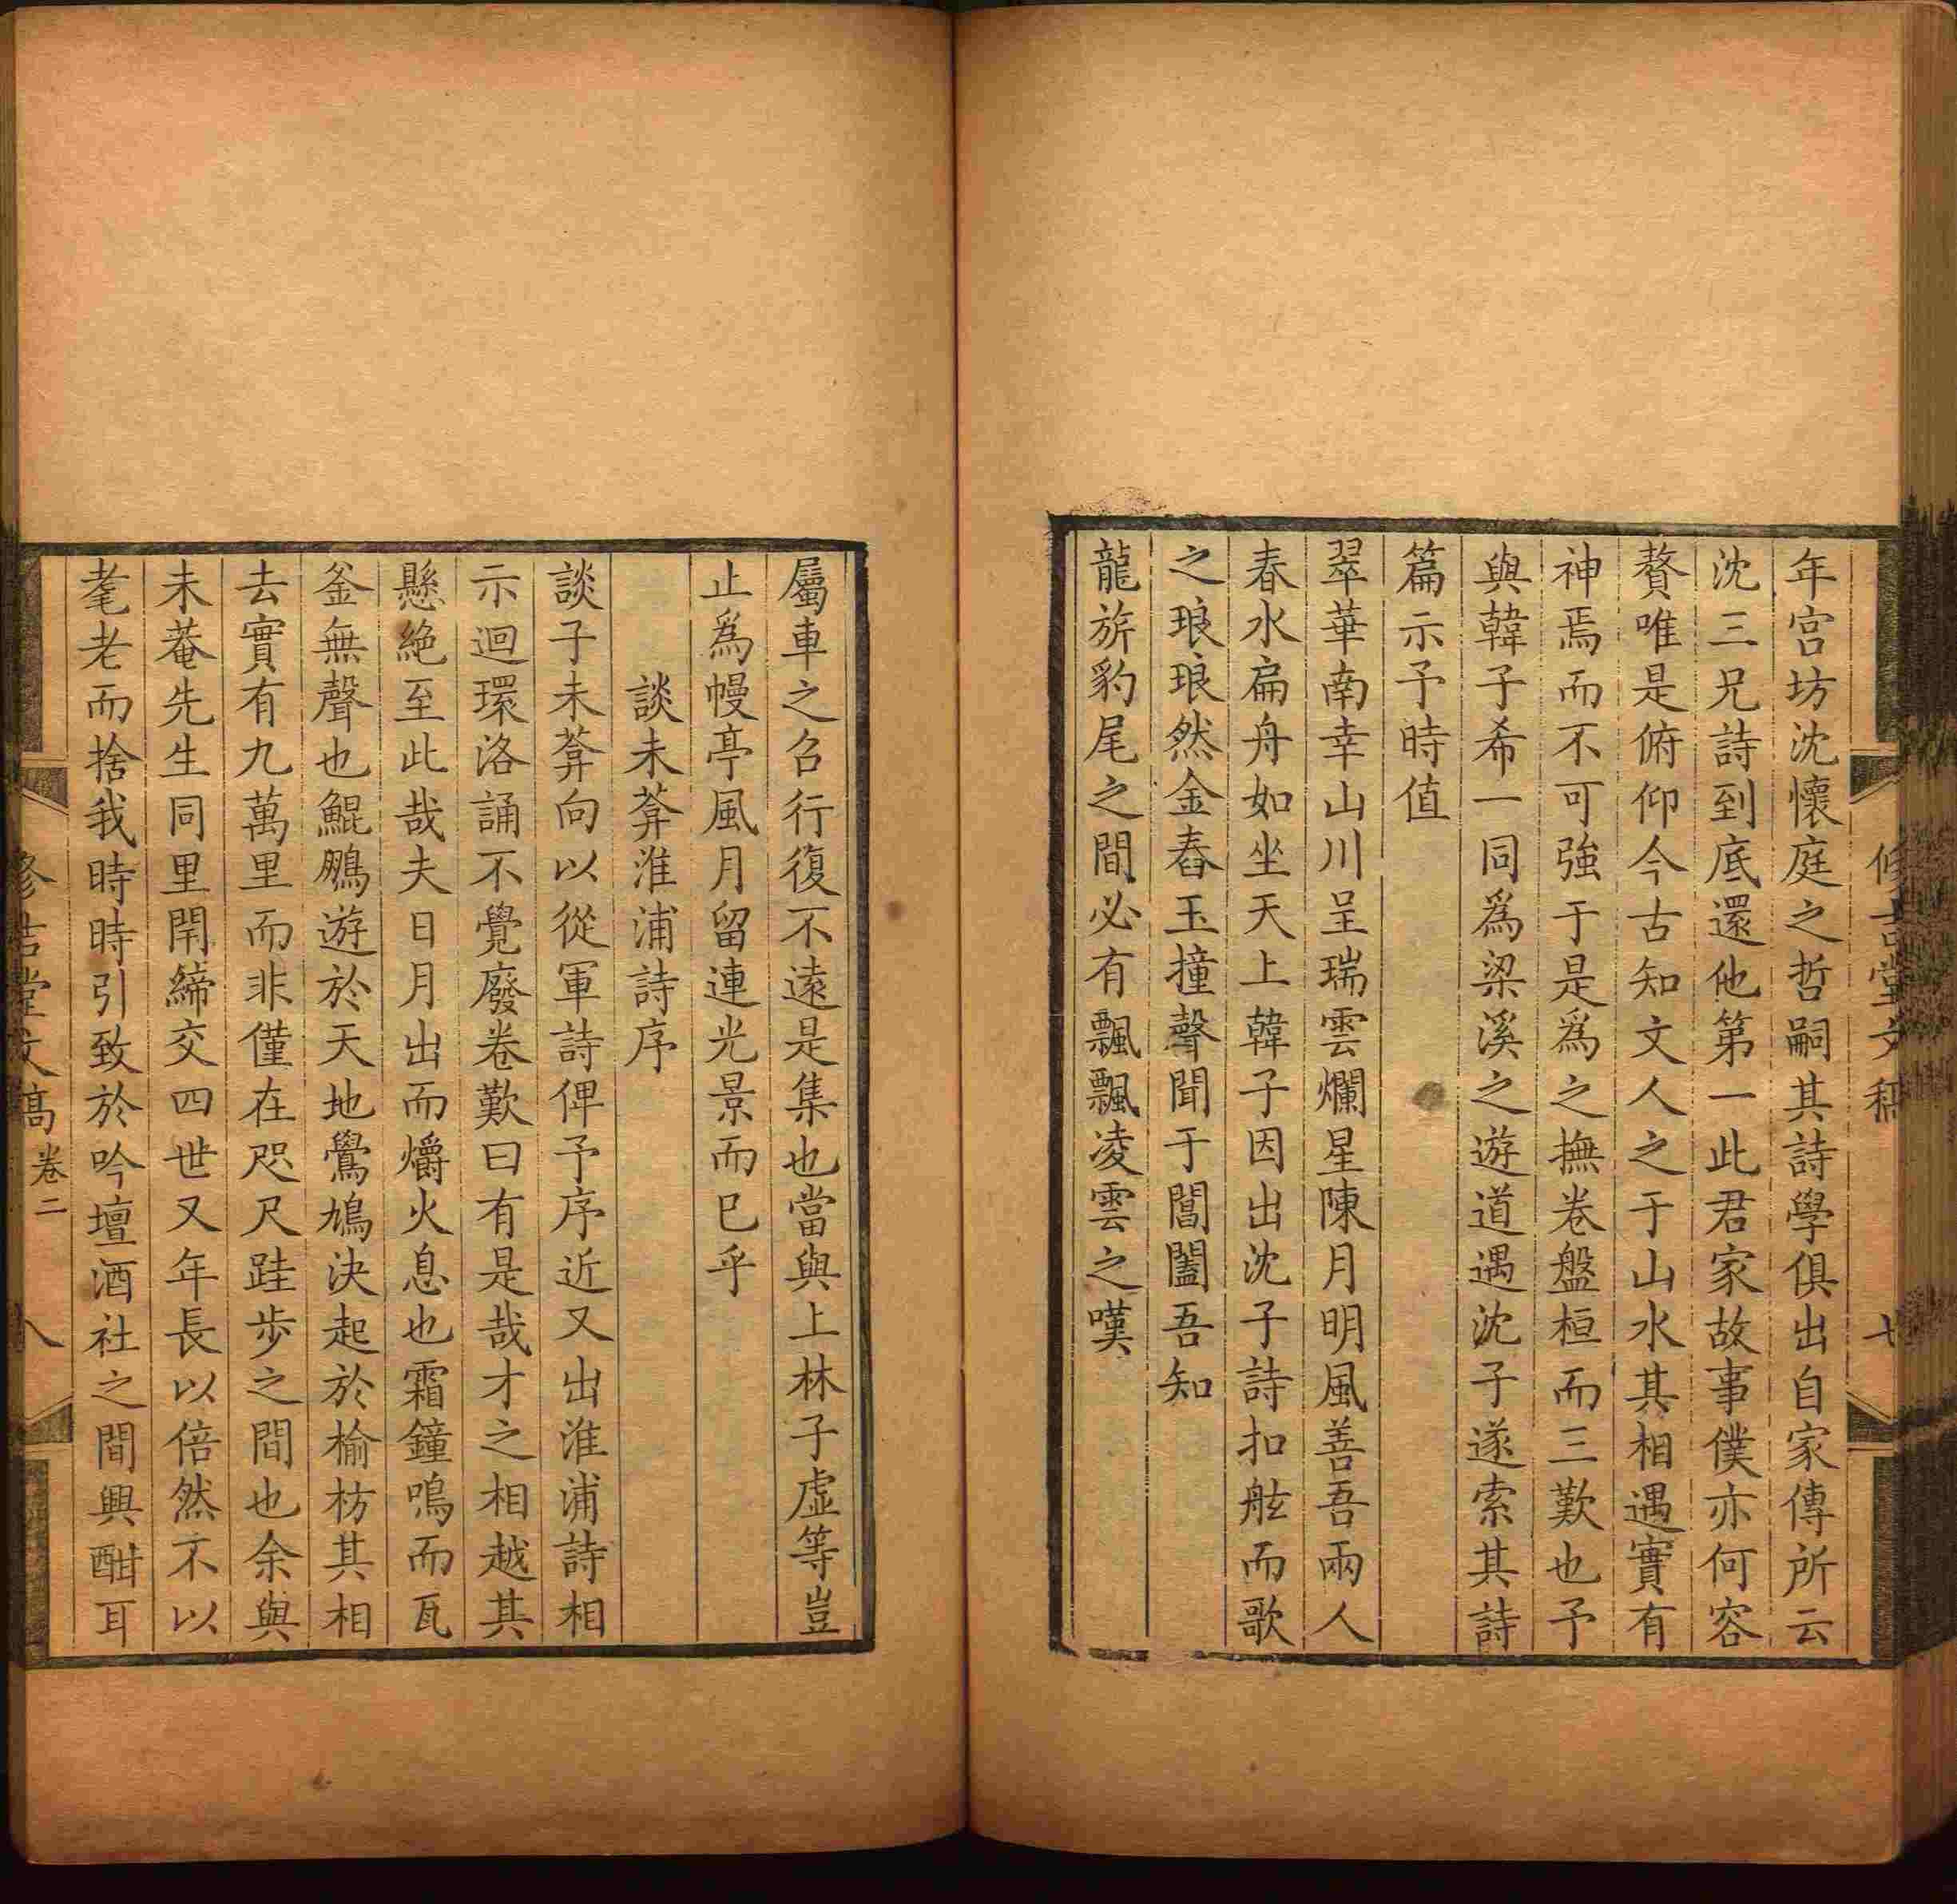 年宫坊沈懷庭之哲嗣其詩學俱出自家傳所云
沈三兄詩到底還他第一此君家故事僕亦何容
贅唯是俯仰今古知文人之于山水其相遇實有
神焉而不可強于是爲之撫卷盤桓而三歎也予
與韓子希一同爲梁溪之遊道遇沈子遂索其詩
篇示予時值
翠華南幸山川呈瑞雲爛星陳月明風善吾兩人
春水扁舟如坐天上韓子因出沈子詩扣舷而歌
之琅琅然金舂玉撞聲聞于閶闔吾知
龍旂豹尾之間必有飄飄凌雲之嘆
屬車之召行復不遠是集也當與上林子虛等豈
止爲幔亭風月留連光景而已乎
談未葊淮浦詩序
談子未葊向以從軍詩俾予序近又出淮浦詩相
示迴環洛誦不覺廢卷歎曰有是哉才之相越其
懸絶至此哉夫日月出而爝火息也霜鐘鳴而瓦
釜無聲也鯤鵬遊於天地鷽鳩決起於榆枋其相
去實有九萬里而非僅在咫尺跬步之間也余與
未菴先生同里閈締交四世又年長以倍然不以
耄老而捨我時時引致於吟壇酒社之間興酣耳
修吉堂文稿 卷二 八